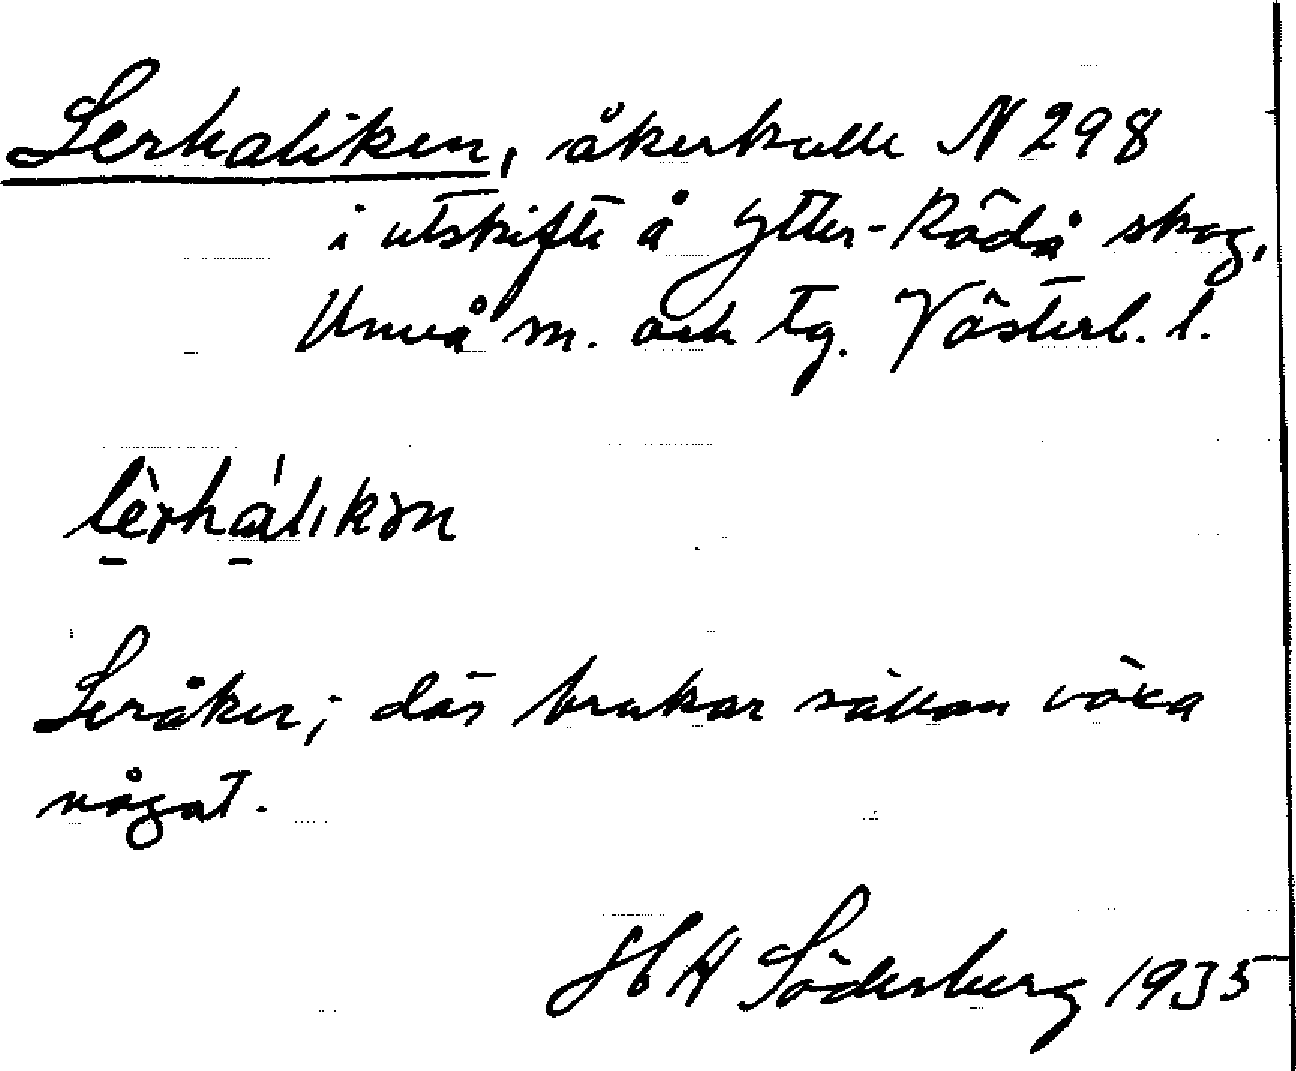 Lerhaliken, åkerkulle N 298
i utskifte å Ytter-Rödå skog,
Umeå m. och tg. Västerb. l.
lèrhálıkən
Leråker; där brukar sällan växa
något.
H Söderberg 1935